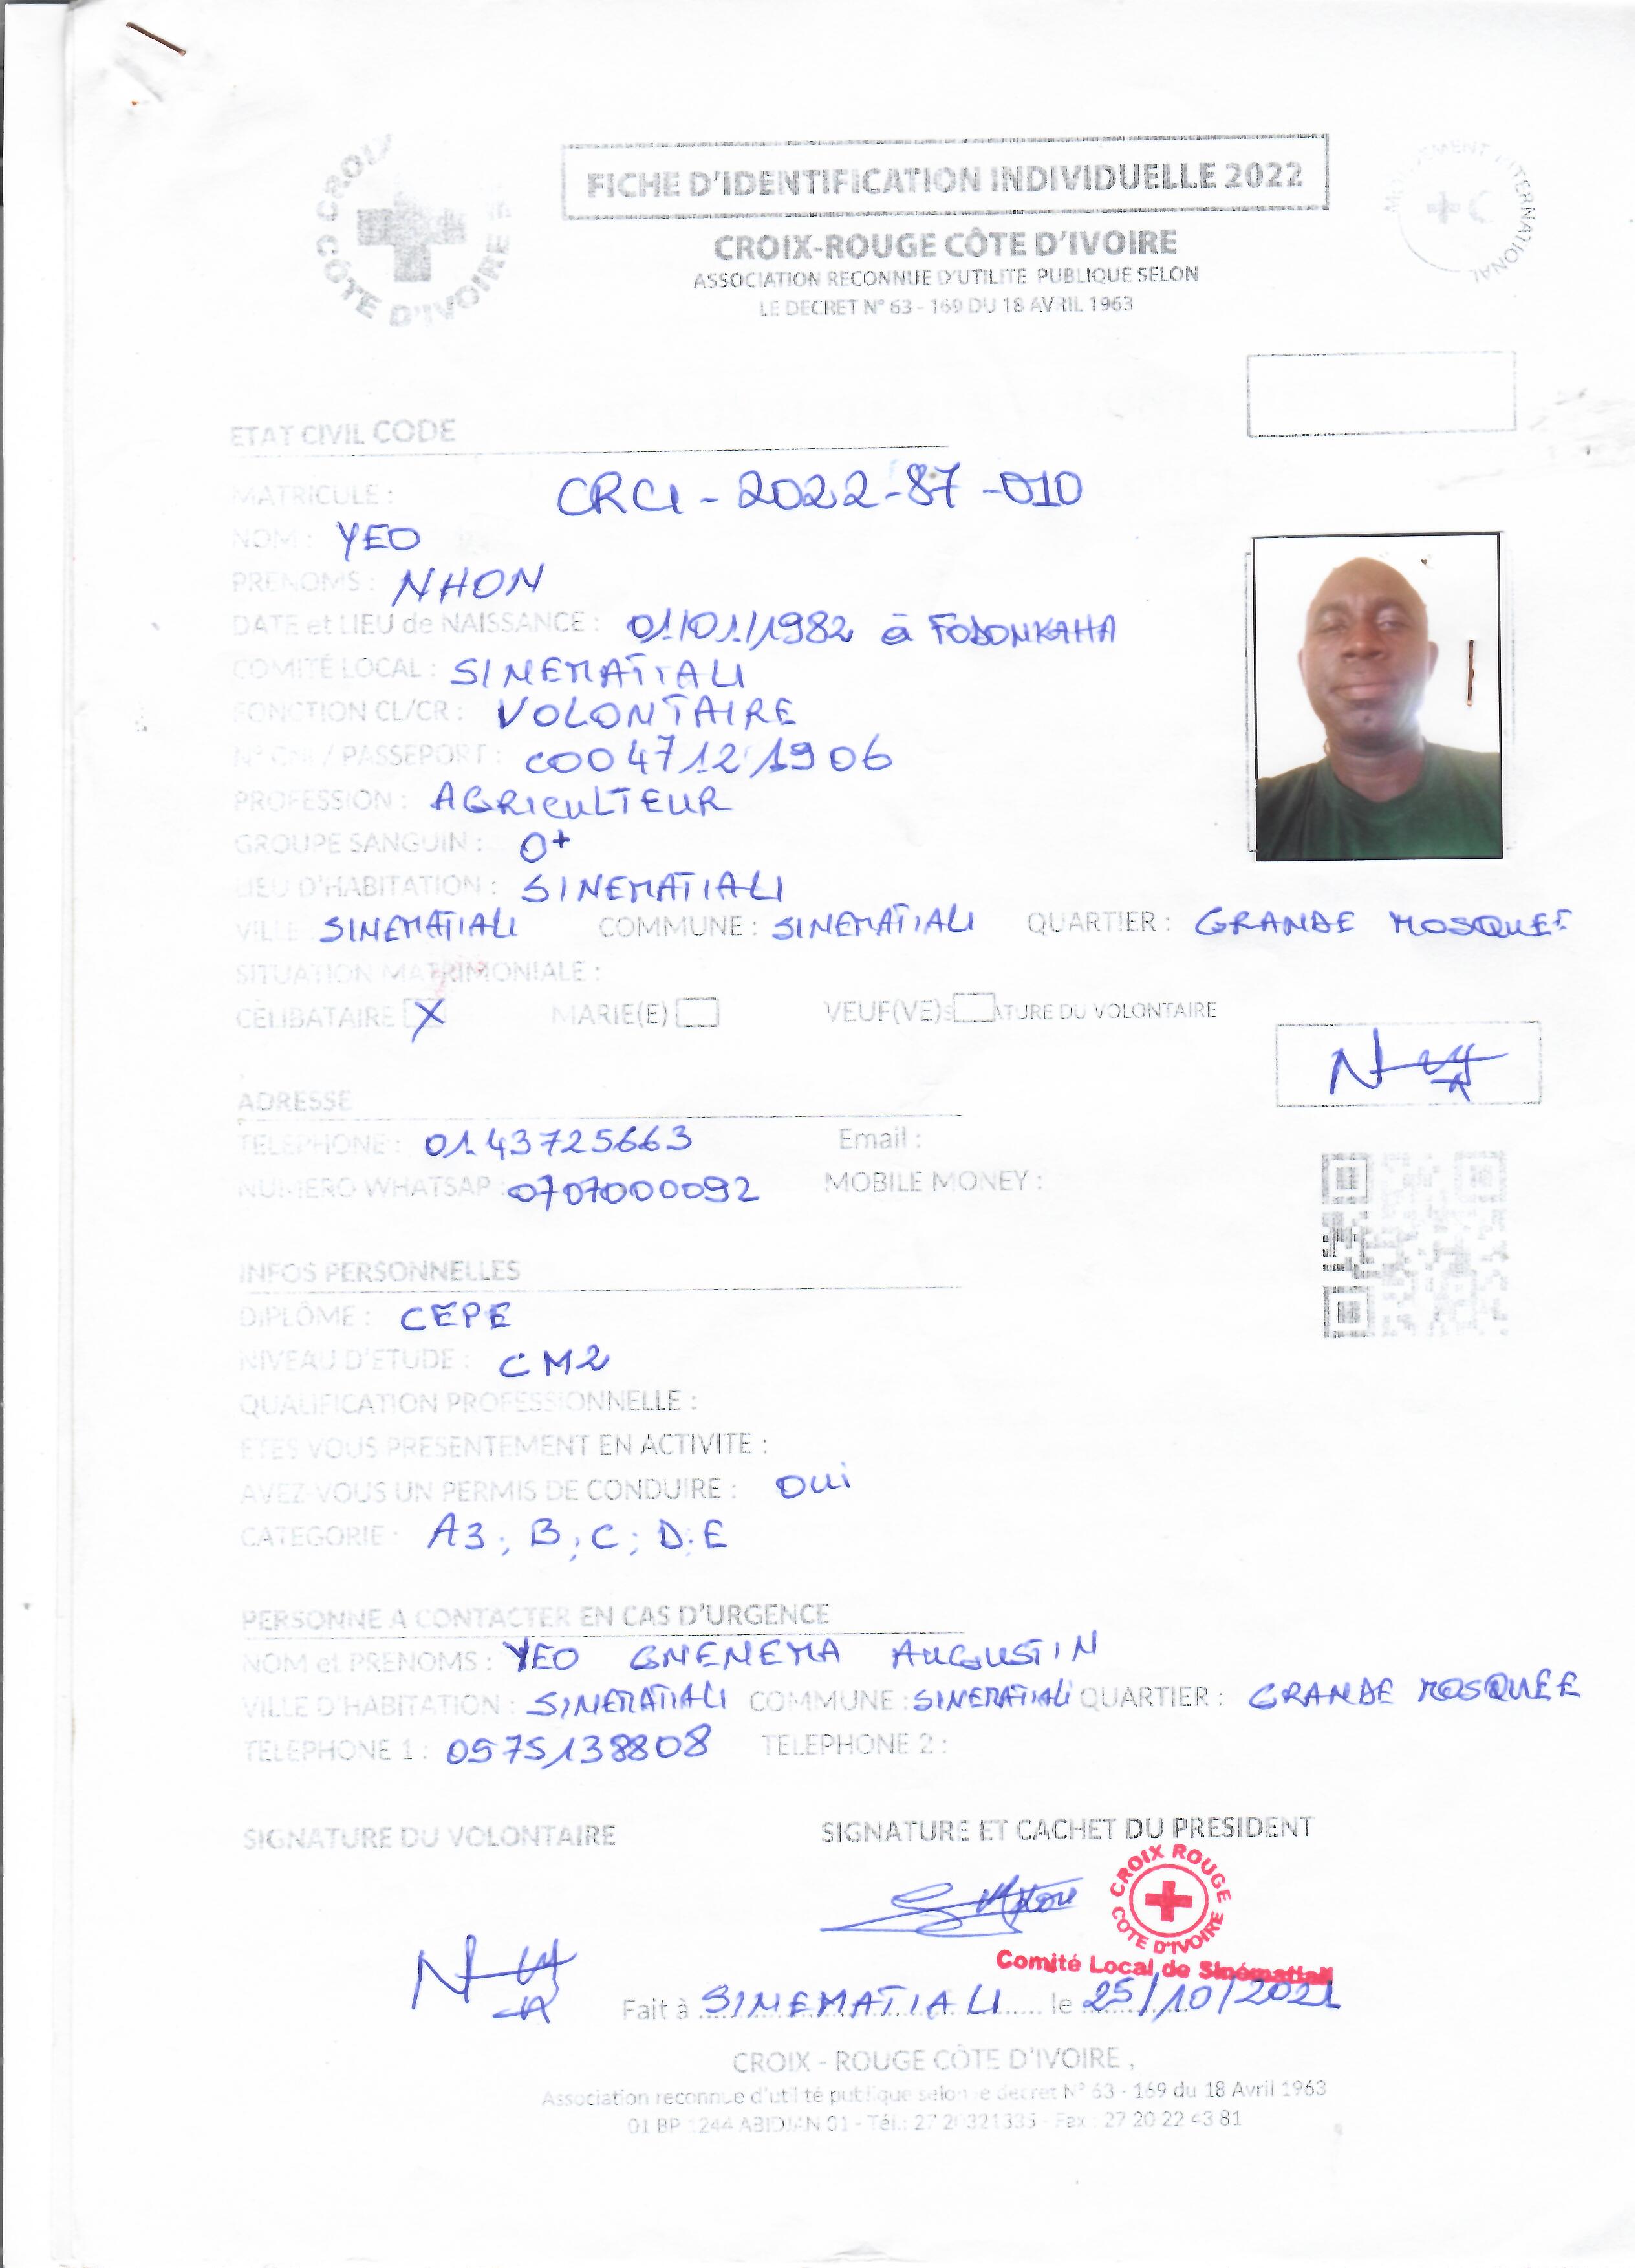 CROIX
CÔTE D'IVOIRE
FICHE D'IDENTIFICATION INDIVIDUELLE 2022
MOUVEMENT INTERNATIONAL
CROIX-ROUGE CÔTE D'IVOIRE
ASSOCIATION RECONNUE D'UTILITE PUBLIQUE SELON
LE DECRET N° 63 - 169 DU 18 AVRIL 1963
ETAT CIVIL CODE
MATRICULE : CRCI - 2022-87-010
NOM : YEO
PRENOMS : NHON
DATE et LIEU de NAISSANCE : 01/01/1982 à FODONKAHA
COMITÉ LOCAL : SINEMATIALI
FONCTION CL/CR : VOLONTAIRE
N° CNI / PASSEPORT : C004712 1906
PROFESSION : AGRICULTEUR
GROUPE SANGUIN : O+
LIEU D'HABITATION : SINEMATIALI
VILLE SINEMATIALI COMMUNE : SINEMATIALI QUARTIER : GRANDE MOSQUEE
SITUATION MATRIMONIALE :
CÉLIBATAIRE X MARIE(E) VEUF(VE) ATURE DU VOLONTAIRE
ADRESSE
TELEPHONE : 0143725663 Email :
NUMERO WHATSAP : 0707000092 MOBILE MONEY :
INFOS PERSONNELLES
DIPLÔME : CEPE
NIVEAU D'ETUDE : CM2
QUALIFICATION PROFESSIONNELLE :
ETES VOUS PRESENTEMENT EN ACTIVITE :
AVEZ-VOUS UN PERMIS DE CONDUIRE : OUi
CATEGORIE : A3 ; B ; C ; D ; E
PERSONNE A CONTACTER EN CAS D'URGENCE
NOM et PRENOMS : YEO GNENEMA AUGUSTIN
VILLE D'HABITATION : SINEMATIALI COMMUNE : SINEMATIALI QUARTIER : GRANDE MOSQUEE
TELEPHONE 1 : 0575138808 TELEPHONE 2 :
SIGNATURE DU VOLONTAIRE SIGNATURE ET CACHET DU PRESIDENT
CROIX ROUGE
CÔTE D'IVOIRE
Comité Local de Sinématiali
Fait à SINEMATIALI le 25/10/2021
CROIX - ROUGE CÔTE D'IVOIRE ,
Association reconnue d'utilité publique selon le decret N° 63 - 169 du 18 Avril 1963
01 BP 1244 ABIDJAN 01 - Tél.: 27 20 321335 - Fax : 27 20 22 43 81